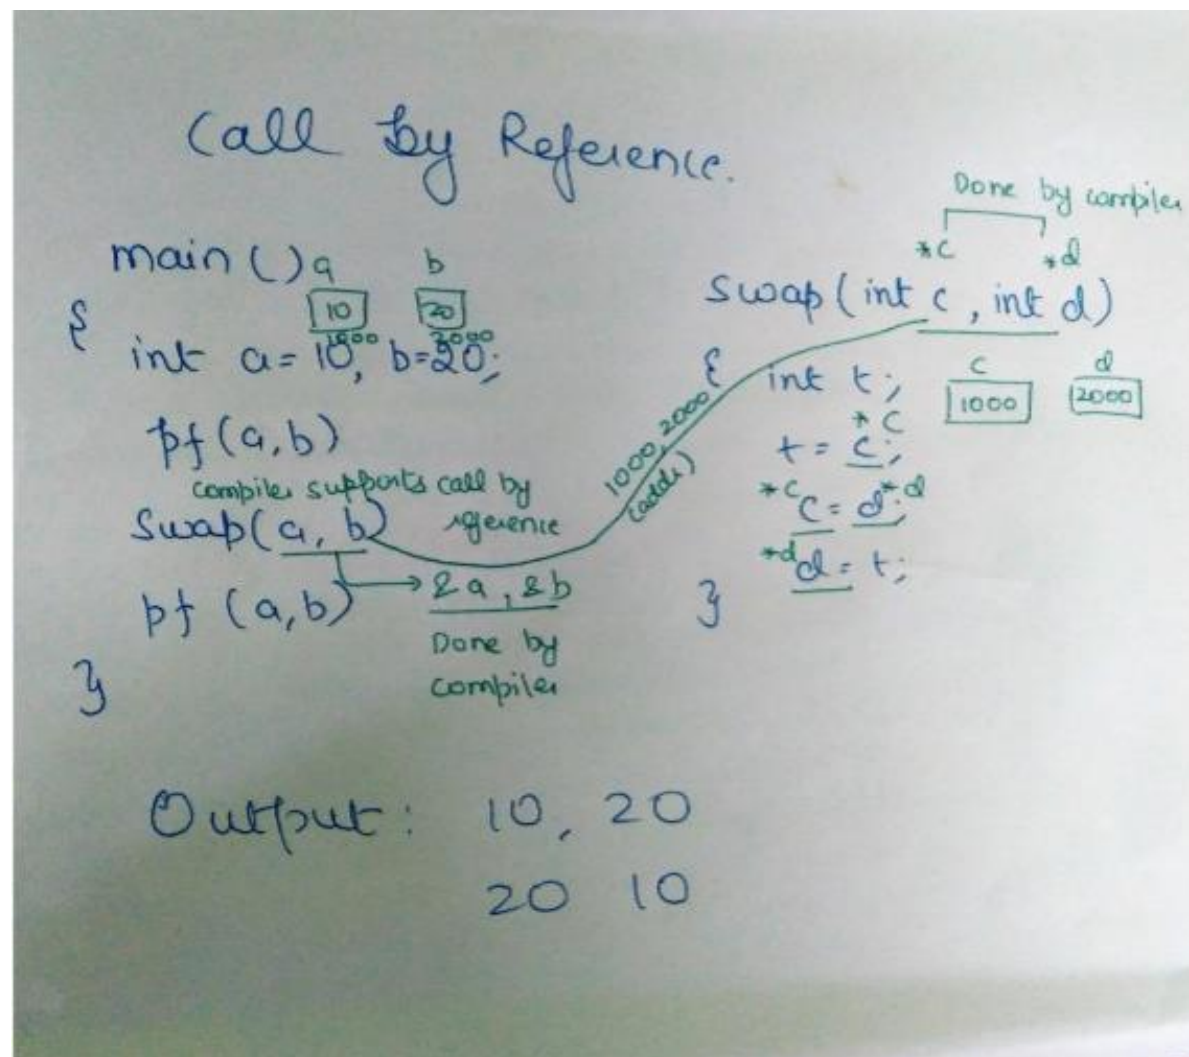 Call by Reference.
main ()
a b
10 20
1000 2000
{
int a=10, b=20;
pf (a,b)
compiler supports call by
reference
Swap(a, b)
&a, &b
pf (a,b)
Done by
compiler
}
1000, 2000
(addr)
Done by compiler
*c *d
Swap (int c, int d)
{
int t;
c d
1000 2000
*c
t = c;
*c *d
c = d;
*d
d = t;
}
Output: 10, 20
20 10